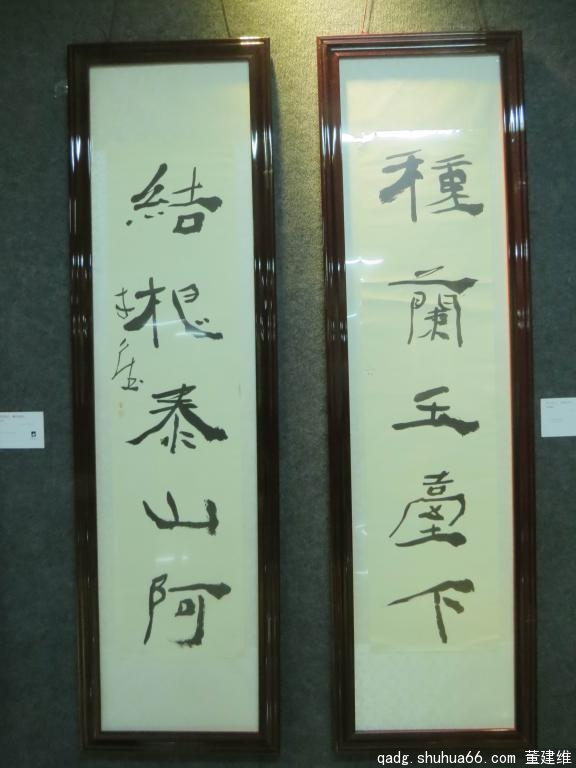 種蘭玉臺下
結根泰山阿
qadg.shuhua66.com 董建维